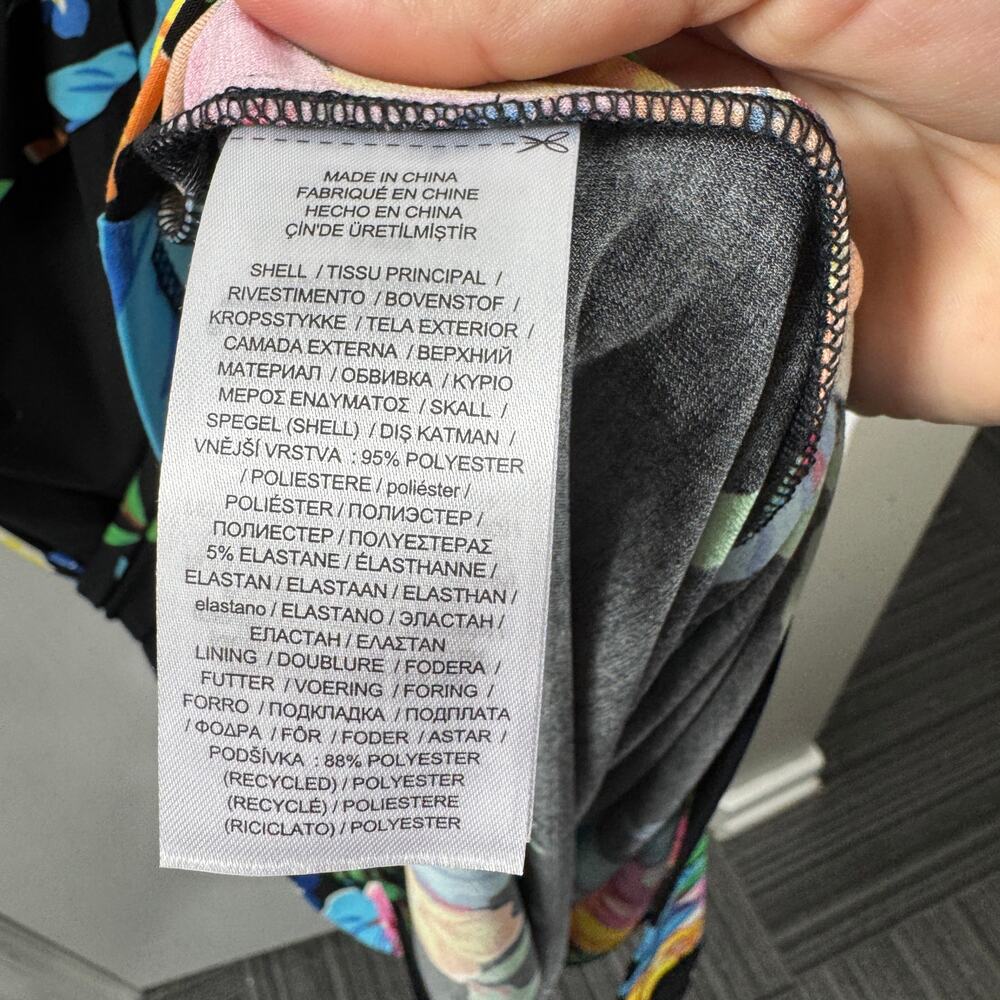 MADE IN CHINA
FABRIQUÉ EN CHINE
HECHO EN CHINA
ÇİN'DE ÜRETİLMİŞTİR
SHELL / TISSU PRINCIPAL /
RIVESTIMENTO / BOVENSTOF /
KROPSSTYKKE / TELA EXTERIOR /
CAMADA EXTERNA / ВЕРХНИЙ
МАТЕРИАЛ / ОБВИВКА / ΚΥΡΙΟ
ΜΕΡΟΣ ΕΝΔΥΜΑΤΟΣ / SKALL /
SPEGEL (SHELL) / DIŞ KATMAN /
VNĚJŠÍ VRSTVA : 95% POLYESTER
/ POLIESTERE / poliéster /
POLIÉSTER / ПОЛИЭСТЕР /
ПОЛИЕСТЕР / ΠΟΛΥΕΣΤΕΡΑΣ
5% ELASTANE / ÉLASTHANNE /
ELASTAN / ELASTAAN / ELASTHAN /
elastano / ELASTANO / ЭЛАСТАН /
ЕЛАСТАН / ΕΛΑΣΤΑΝ
LINING / DOUBLURE / FODERA /
FUTTER / VOERING / FORING /
FORRO / ПОДКЛАДКА / ПОДПЛАТА
/ ΦΟΔΡΑ / FÔR / FODER / ASTAR /
PODŠÍVKA : 88% POLYESTER
(RECYCLED) / POLYESTER
(RECYCLÉ) / POLIESTERE
(RICICLATO) / POLYESTER